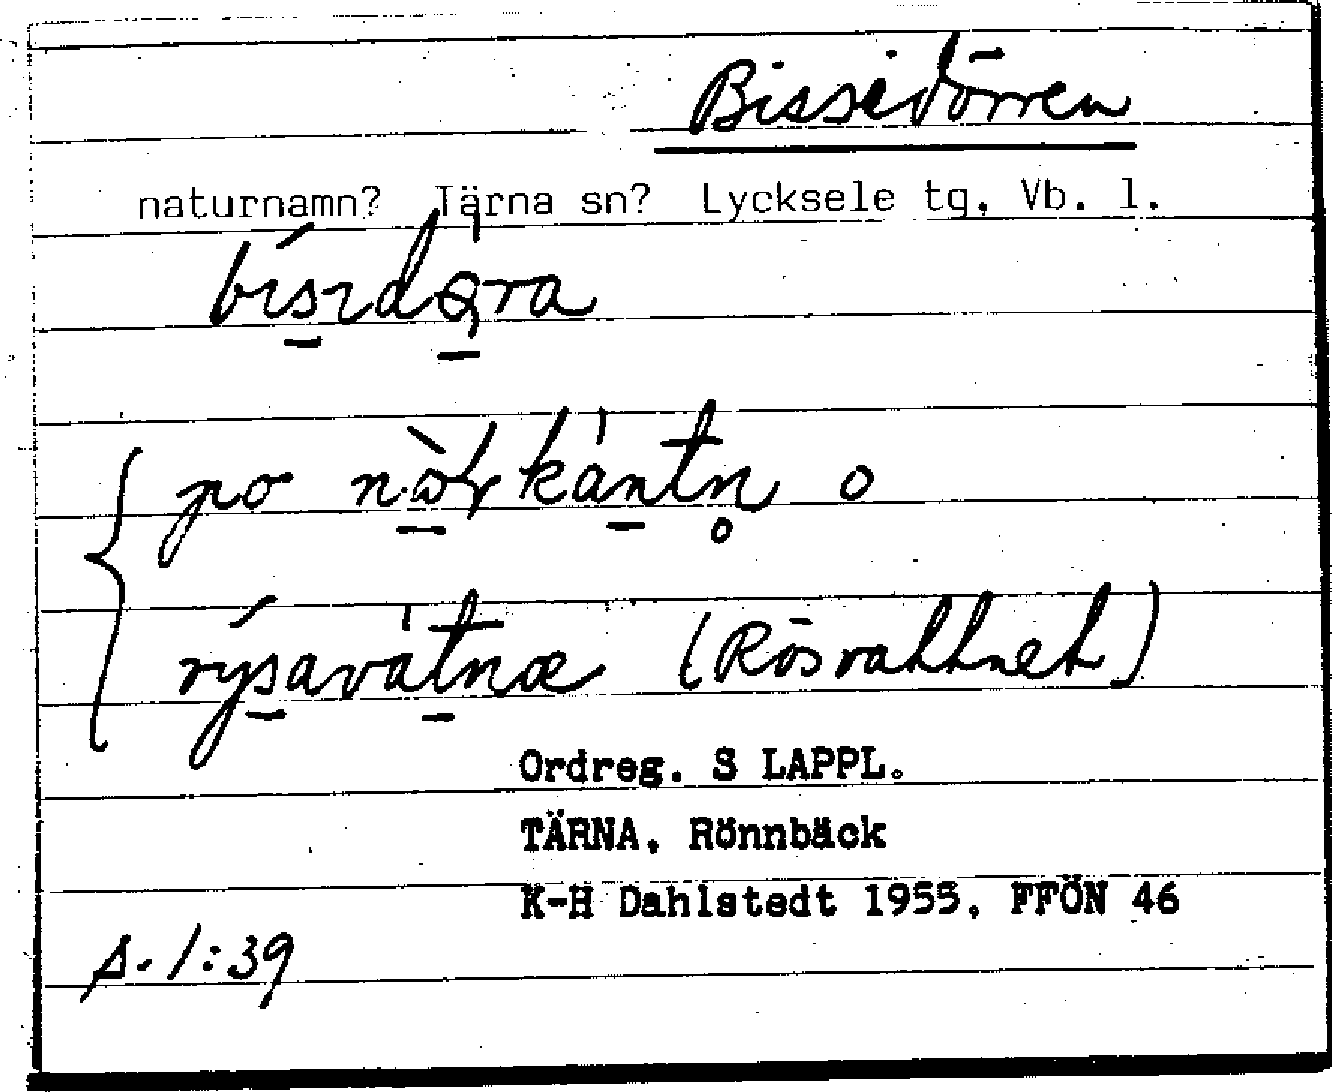 Bissidörren
naturnamn? Tärna sn? Lycksele tg, Vb. l.
po o
(Rösvattnet)
Ordreg. S LAPPL.
TÄRNA. Rönnbäck
K-H Dahlstedt 1955, FFÖN 46
s. 1:39